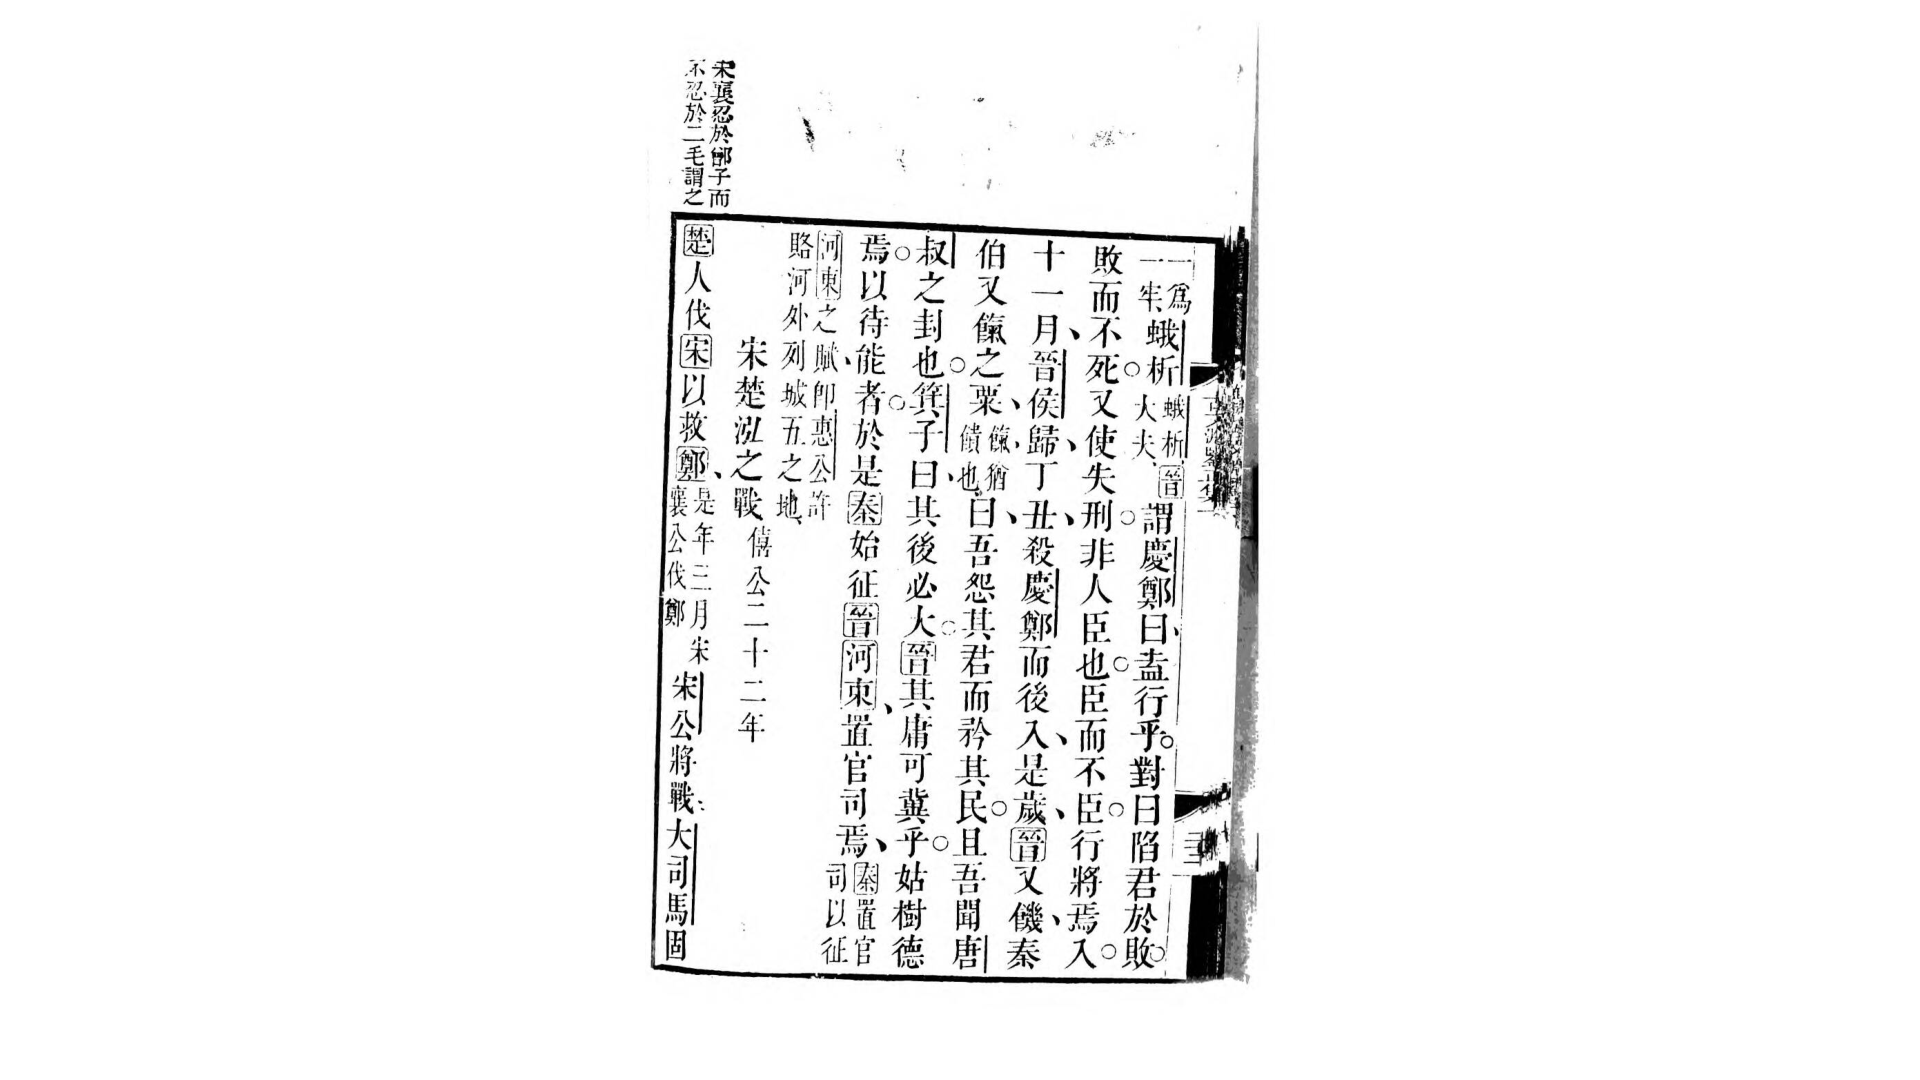 宋襄忍於鄫子而
不忍於二毛謂之
一爲一牢蛾析蛾析晉大夫謂慶鄭曰盍行乎。對曰陷君於敗。
敗而不死。又使失刑。非人臣也。臣而不臣。行將焉入。
十一月、晉侯歸、丁丑、殺慶鄭而後入、是歲、晉又饑、秦
伯又餼之粟、餼猶饋也曰、吾怨其君而矜其民。且吾聞唐
叔之封也。箕子曰、其後必大。晉其庸可冀乎。姑樹德
焉。以待能者。於是秦始征晉河東、置官司焉、秦置官司以征
河東之賦、卽惠公許
賂河外列城五之地、
宋楚泓之戰僖公二十二年
楚人伐宋以救鄭、是年三月宋襄公伐鄭宋公將戰、大司馬固